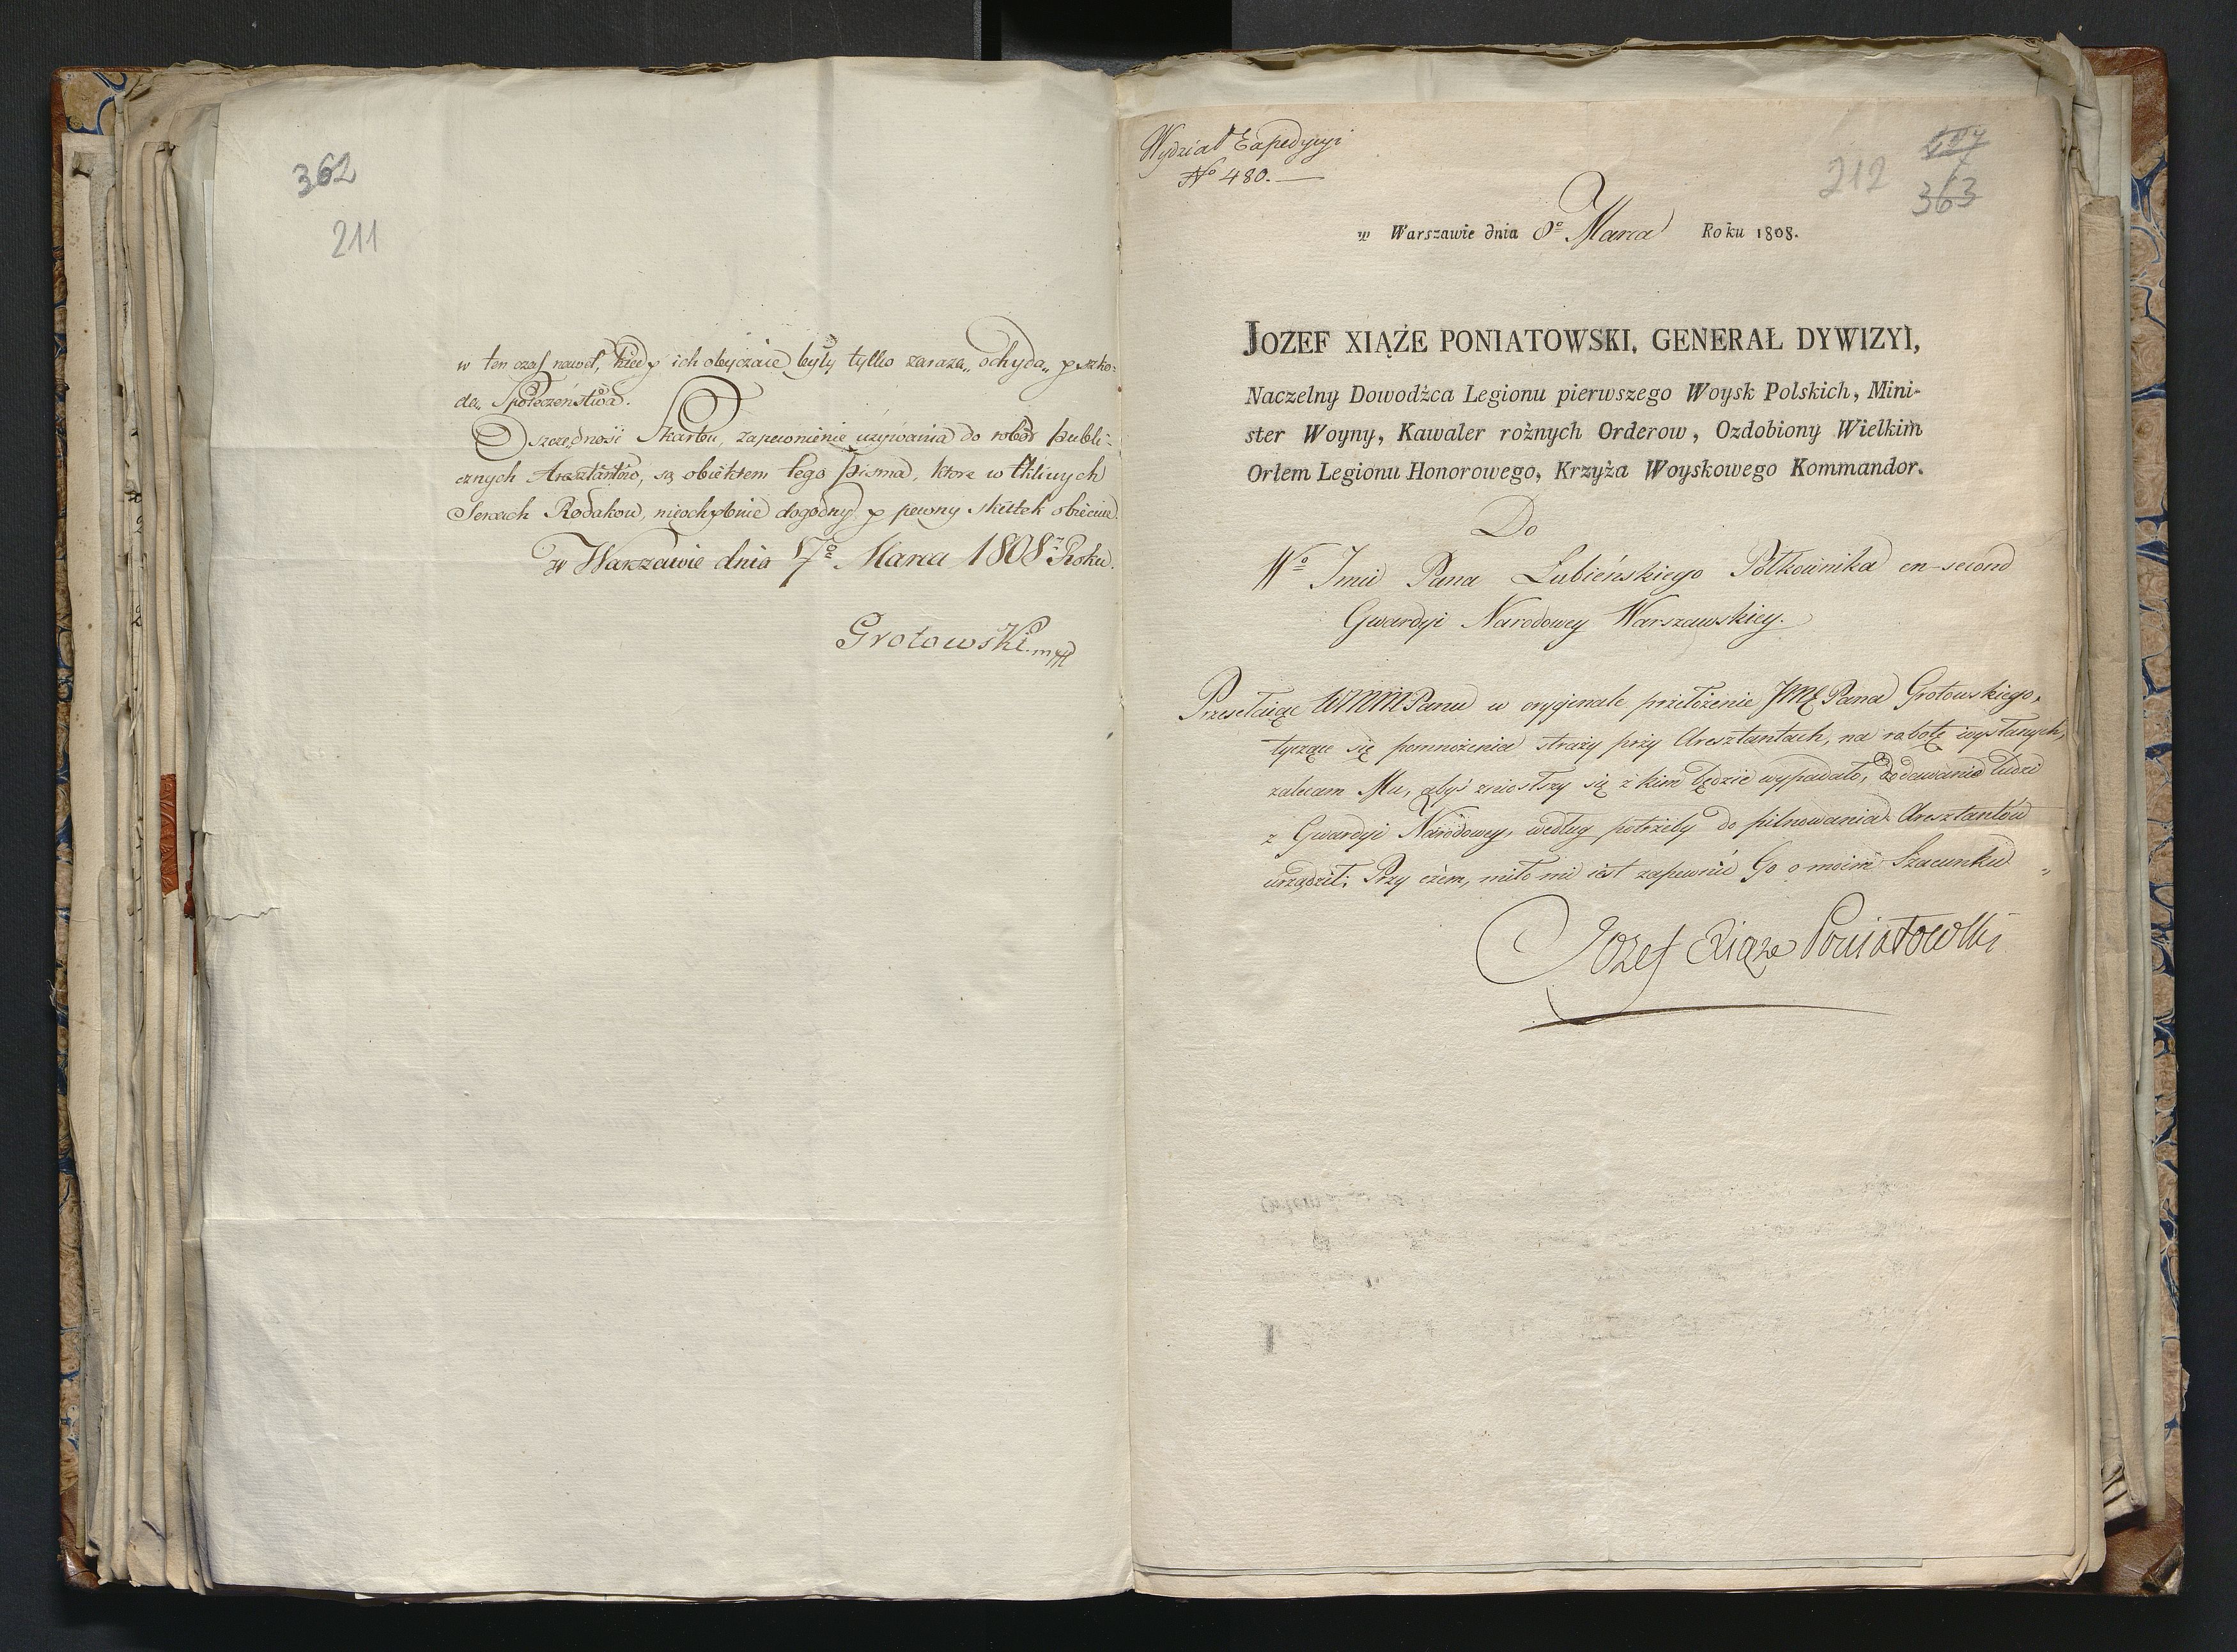 362
211
w ten czas nawet, kiedy ich obyczaie były tylko zarazą, ochydą, y szko-
dą Społeczeństwa.
Oszczędność Skarbu, zapewnienie używania do robót publi-
cznych Aresztantów, są obiektem tego pisma, które w tkliwych
Sercach Rodaków, nieochybnie dogodny y pewny skutek obiecuie.
w Warszawie dnia 7º Marca 1808 Roku.
Grotowski mp
Wydział Expedycyi
Nº 480.
212
363
w Warszawie dnia 8º Marca Roku 1808.
JOZEF XIĄŻE PONIATOWSKI, GENERAŁ DYWIZYI,
Naczelny Dowodźca Legionu pierwszego Woysk Polskich, Mini-
ster Woyny, Kawaler rożnych Orderow, Ozdobiony Wielkim
Orłem Legionu Honorowego, Krzyża Woyskowego Kommandor.
Do
Wº Jmci Pana Lubieńskiego Półkownika en-second
Gwardyi Narodowey Warszawskiey.
Przesełaiąc WMM Panu w oryginale przełożenie JMĆ Pana Grotowskiego,
tyczące się pomnożenia straży przy Aresztantach, na robotę wysłanych,
zalecam Mu, abyś zniosłszy się z kim będzie wypadało, dodawanie ludzi
z Gwardyi Narodowey, według potrzeby do pilnowania Aresztantów
urządził; Przy czém, miło mi iest zapewnić Go o moim Szacunku
Jozef Xiąże Poniatowski